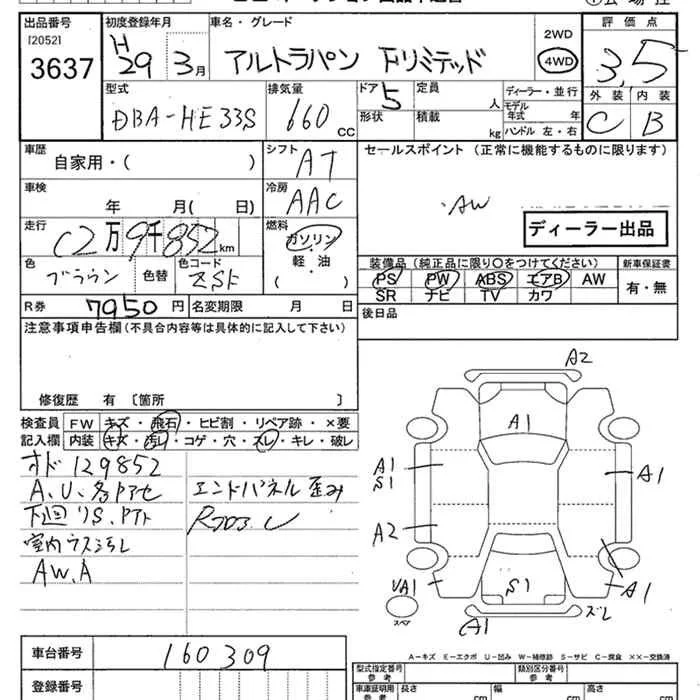 出品番号
[2052]
3637
初度登録年月
H29 3月
車名・グレード
アルトラパン Fリミテッド
2WD
4WD
評価点
3.5
外装 内装
C B
型式
DBA-HE33S
排気量
660 CC
ドア 5
形状
定員 人
積載 kg
ディーラー・並行
モデル年式 年
ハンドル 左・右
車歴
自家用・( )
シフト AT
車検
年 月( 日)
冷房 AAC
セールスポイント (正常に機能するものに限ります)
AW
ディーラー出品
走行
C2万9千852km
燃料
ガソリン
軽・油
( )
色
ブラウン
色替
色コード
ZSF
装備品(純正品に限り○をつけてください)
PS PW ABS エアB AW
SR ナビ TV カワ
新車保証書
有・無
R券 7950円
名変期限 月 日
後日品
注意事項申告欄(不具合内容等は具体的に記入して下さい)
修復歴 有 〔箇所 〕
検査員記入欄
FW キズ・飛石・ヒビ割・リペア跡・×要
内装 キズ・汚レ・コゲ・穴・スレ・キレ・破レ
オド129852
A.U.各Pアセ
下回りS.Pアト
室内ウスヨゴレ
AW.A
エンドパネル歪み
A2
A1
A1
S1
A1
A2
VA1
スペア
S1
A1
A1
ズレ
A-キズ E-エクボ U-凹み W-補修跡 S-サビ C-腐食 ××-交換済
車台番号 160309
登録番号
型式指定番号
参考
類別区分番号
参考
車庫証明用
参考
長さ cm
幅 cm
高さ cm